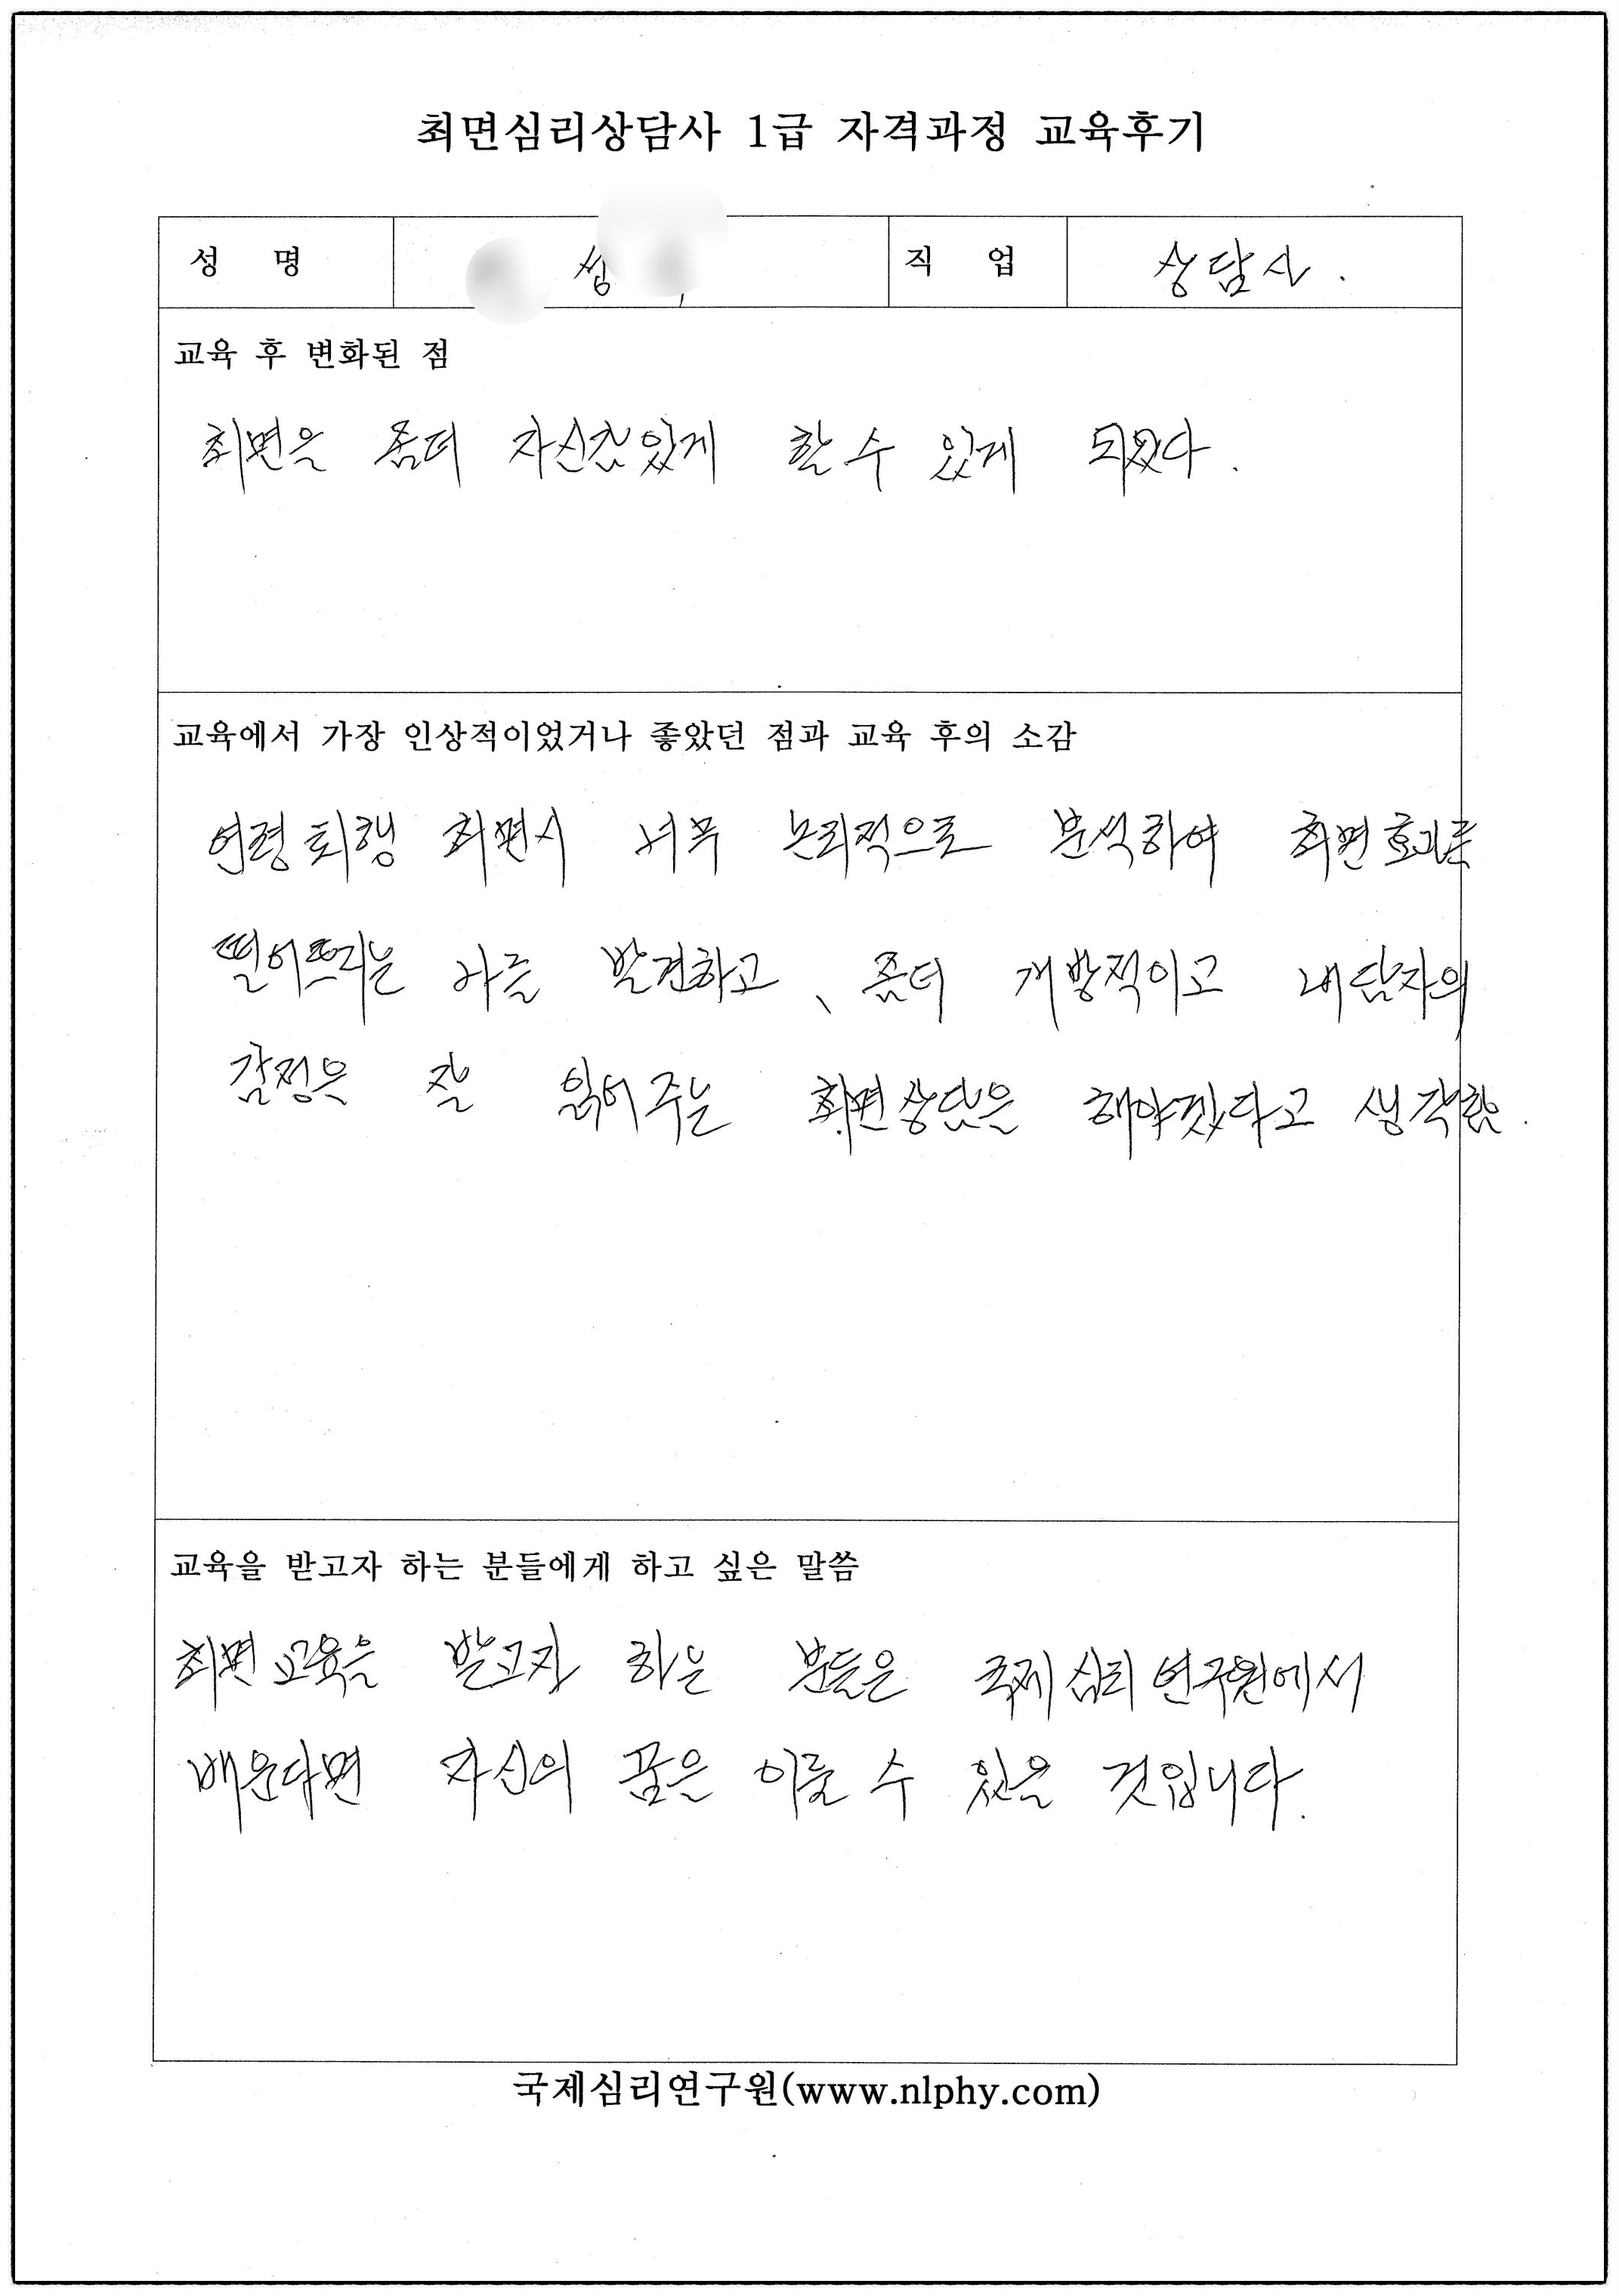 최면심리상담사 1급 자격과정 교육후기
성 명 성 직 업 상담사.
교육 후 변화된 점
최면을 좀더 자신감있게 할 수 있게 되었다.
교육에서 가장 인상적이었거나 좋았던 점과 교육 후의 소감
연령퇴행 최면시 너무 논리적으로 분석하여 최면효과를
떨어뜨리는 나를 발견하고, 좀더 개방적이고 내담자의
감정을 잘 읽어주는 최면상담을 해야겠다고 생각함.
교육을 받고자 하는 분들에게 하고 싶은 말씀
최면교육을 받고자 하는 분들은 국제심리연구원에서
배운다면 자신의 꿈은 이룰 수 있을 것입니다.
국제심리연구원(www.nlphy.com)